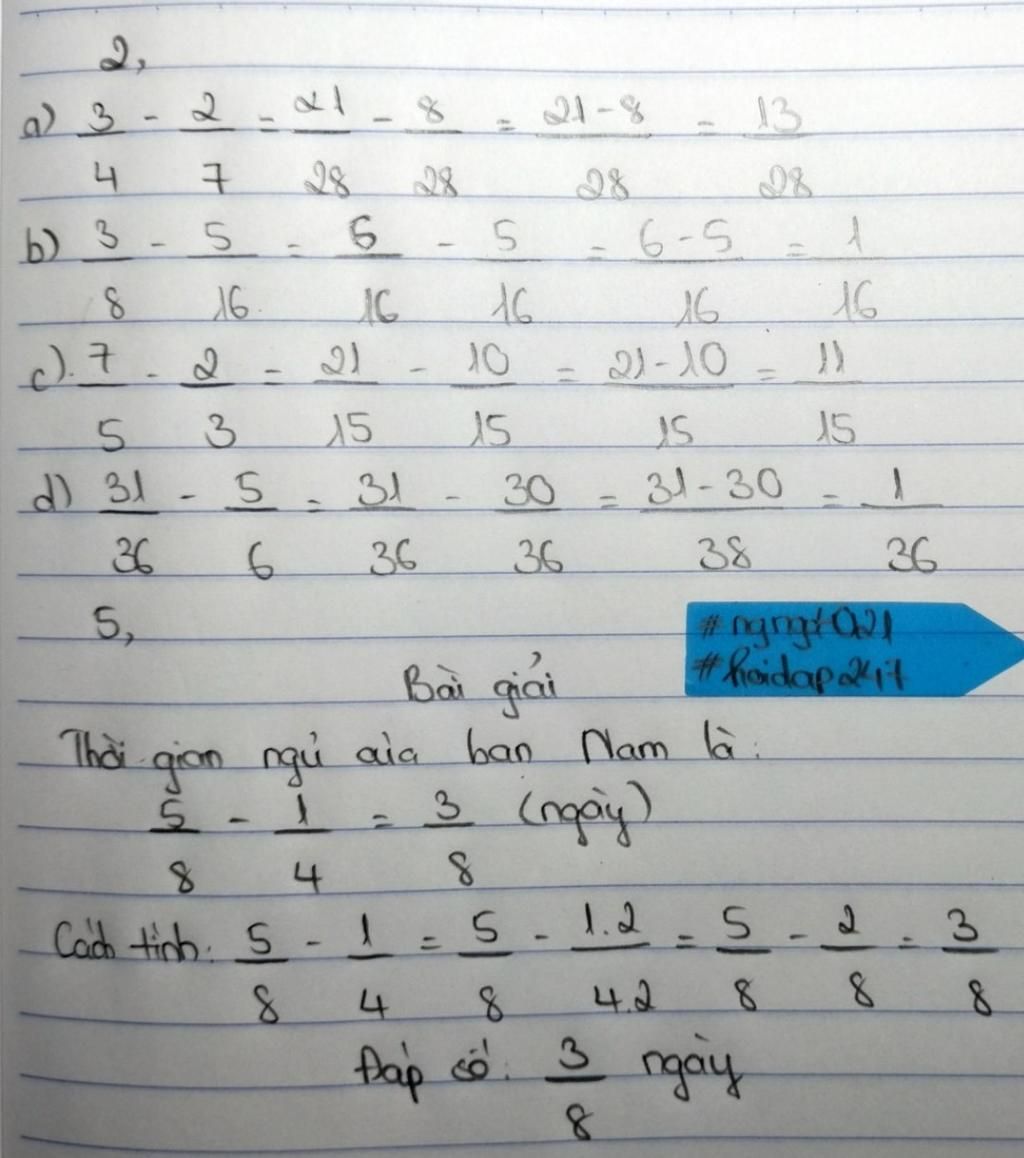 2,
a) 3/4 - 2/7 = 21/28 - 8/28 = 21-8/28 = 13/28
b) 3/8 - 5/16 = 6/16 - 5/16 = 6-5/16 = 1/16
c). 7/5 - 2/3 = 21/15 - 10/15 = 21-10/15 = 11/15
d) 31/36 - 5/6 = 31/36 - 30/36 = 31-30/38 = 1/36
5,
#hoidap247
Bài giải
Thời gian ngủ của bạn Nam là:
5/8 - 1/4 = 3/8 (ngày)
Cách tính: 5/8 - 1/4 = 5/8 - 1.2/4.2 = 5/8 - 2/8 = 3/8
Đáp số: 3/8 ngày